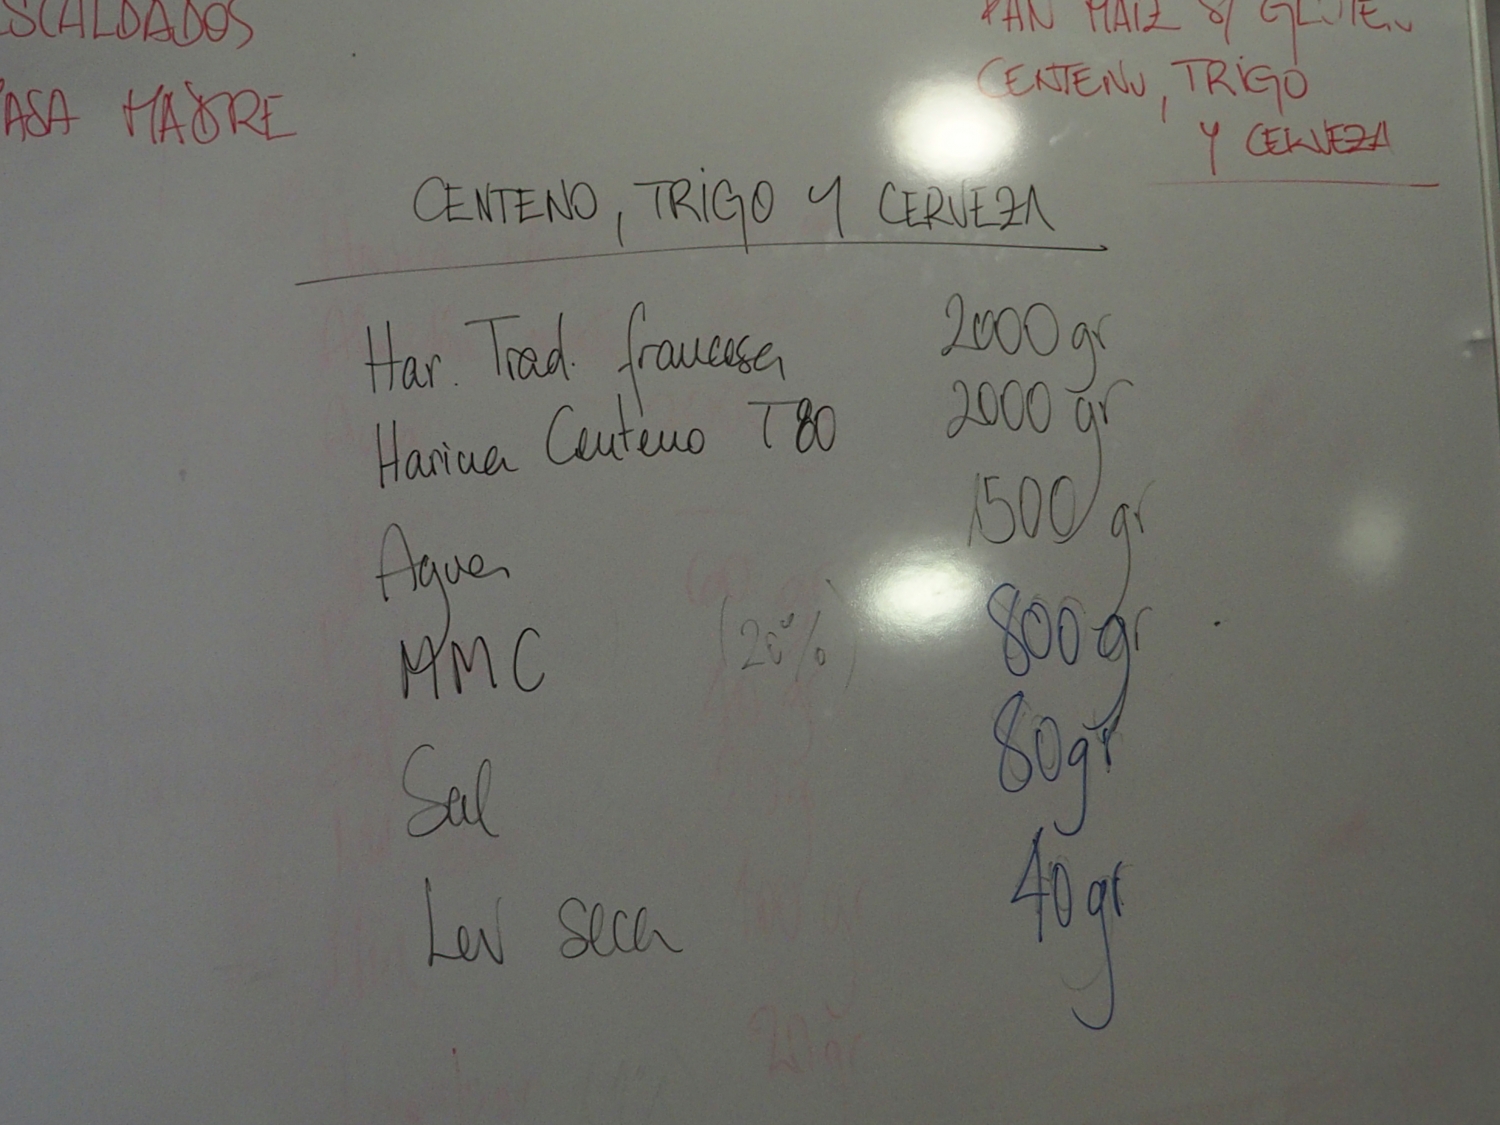 ESCALDADOS
MASA MADRE
PAN MAIZ S/ GLUTEN
CENTENO, TRIGO
Y CERVEZA
CENTENO, TRIGO Y CERVEZA
Har. Trad. francesa 2000 gr
Harina Centeno T80 2000 gr
Agua 1500 gr
MMC (20%) 800 gr
Sal 80gr
Lev seca 40gr